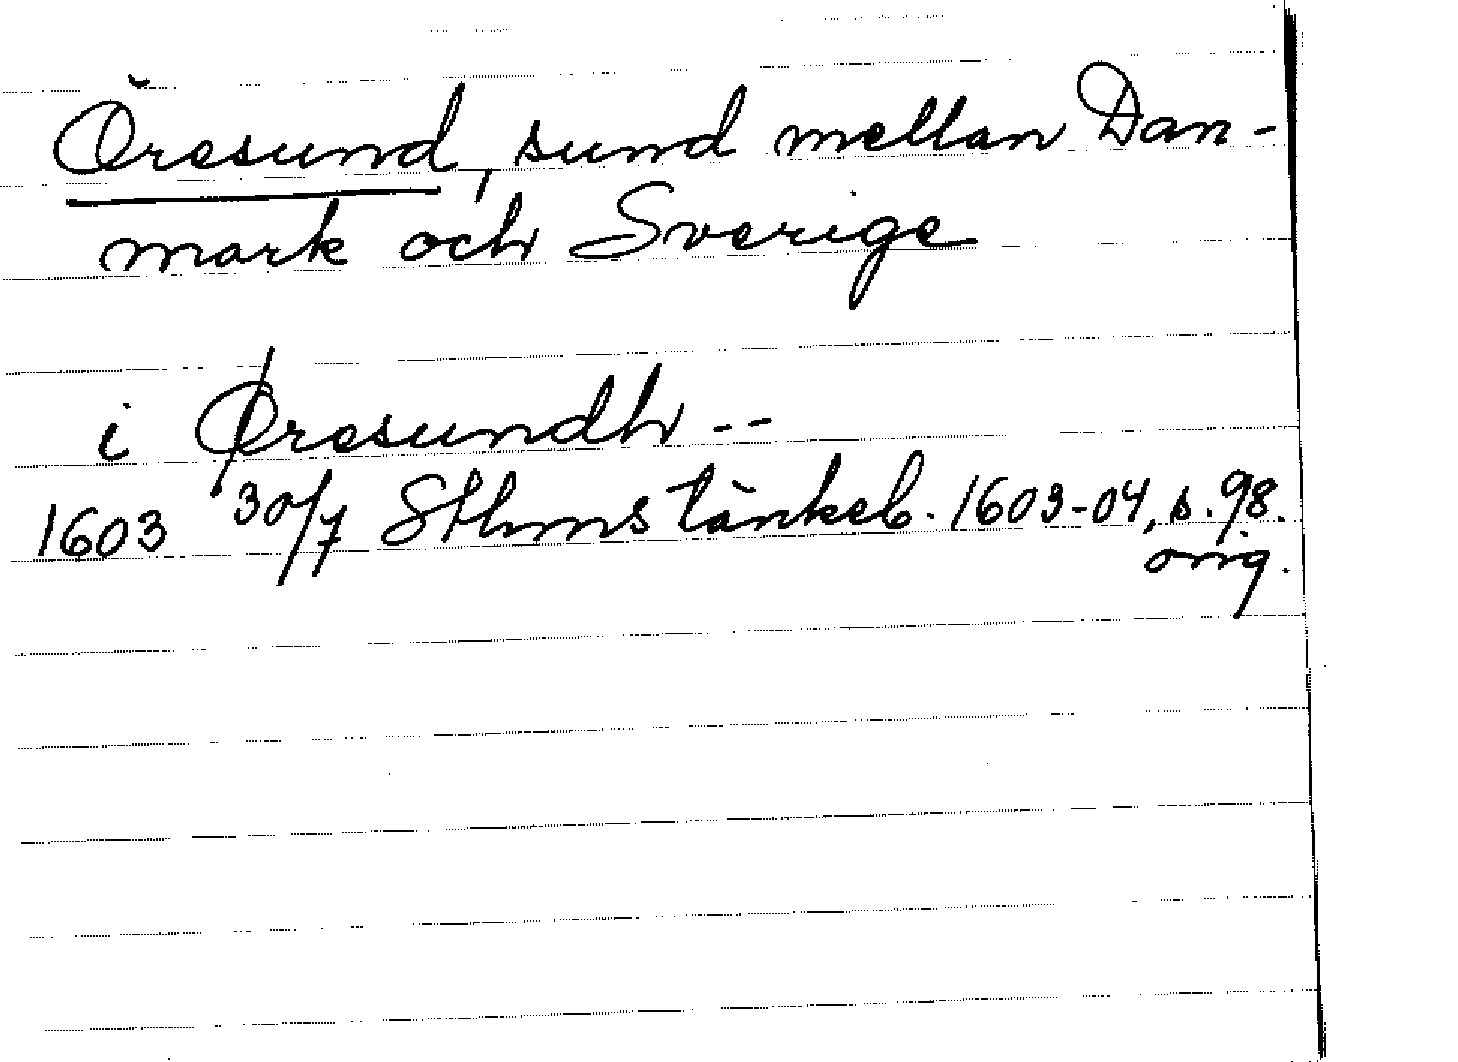 Öresund, sund mellan Dan-
mark och Sverige
i Øresundh --
1603 30/7 Sthms tänkeb. 1603-04, s. 98.
orig.